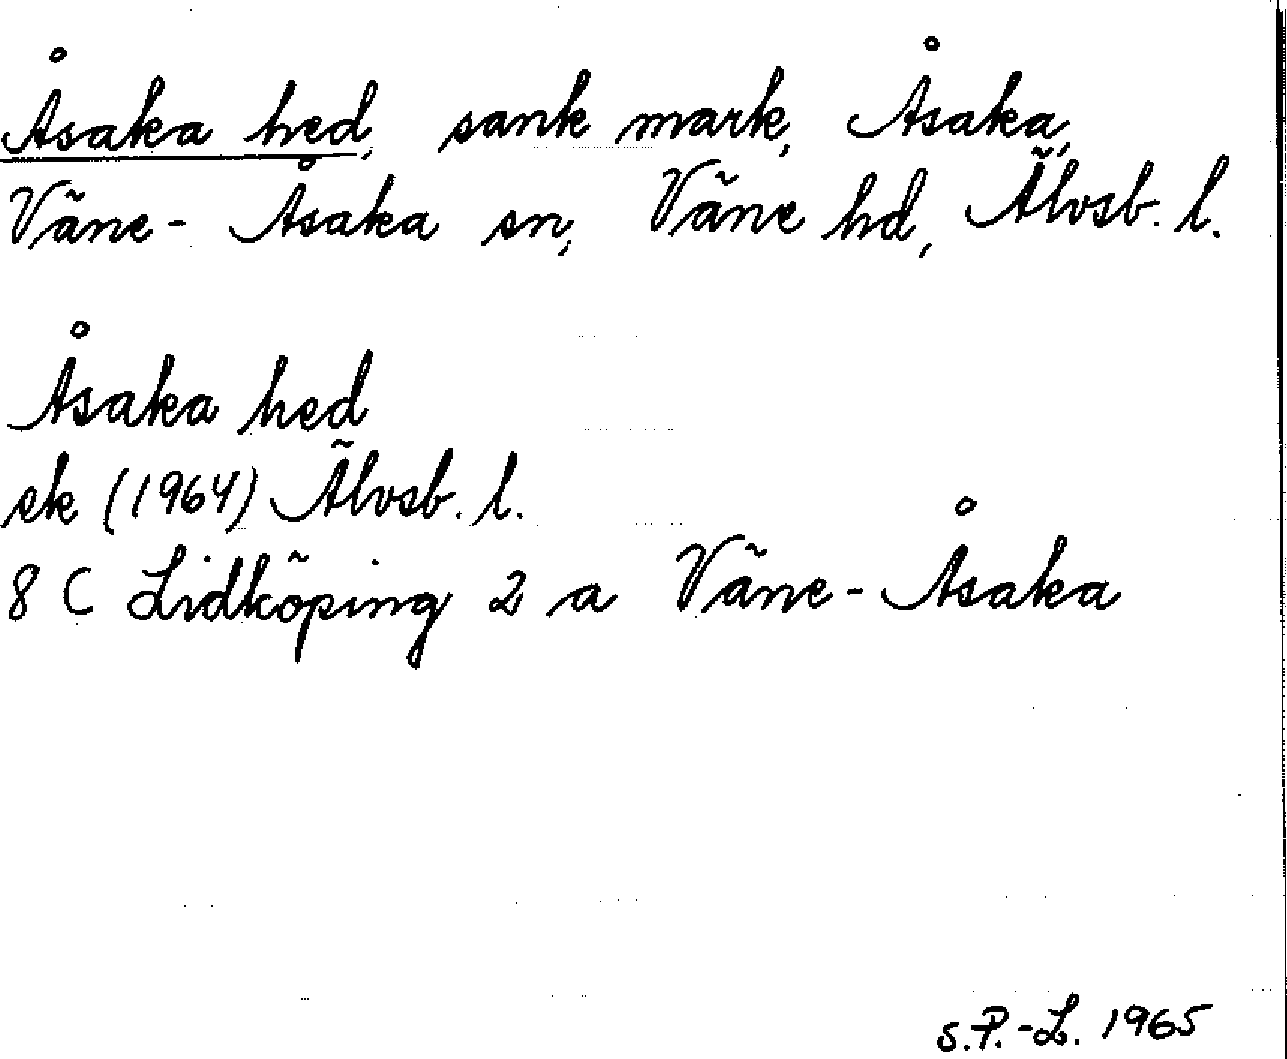 Åsaka hed, sank mark, Åsaka,
Väne-Åsaka sn, Väne hd, Älvsb. l.
Åsaka hed
ek (1964) Älvsb. l.
8 C Lidköping 2 a Väne-Åsaka
S.P.-L. 1965